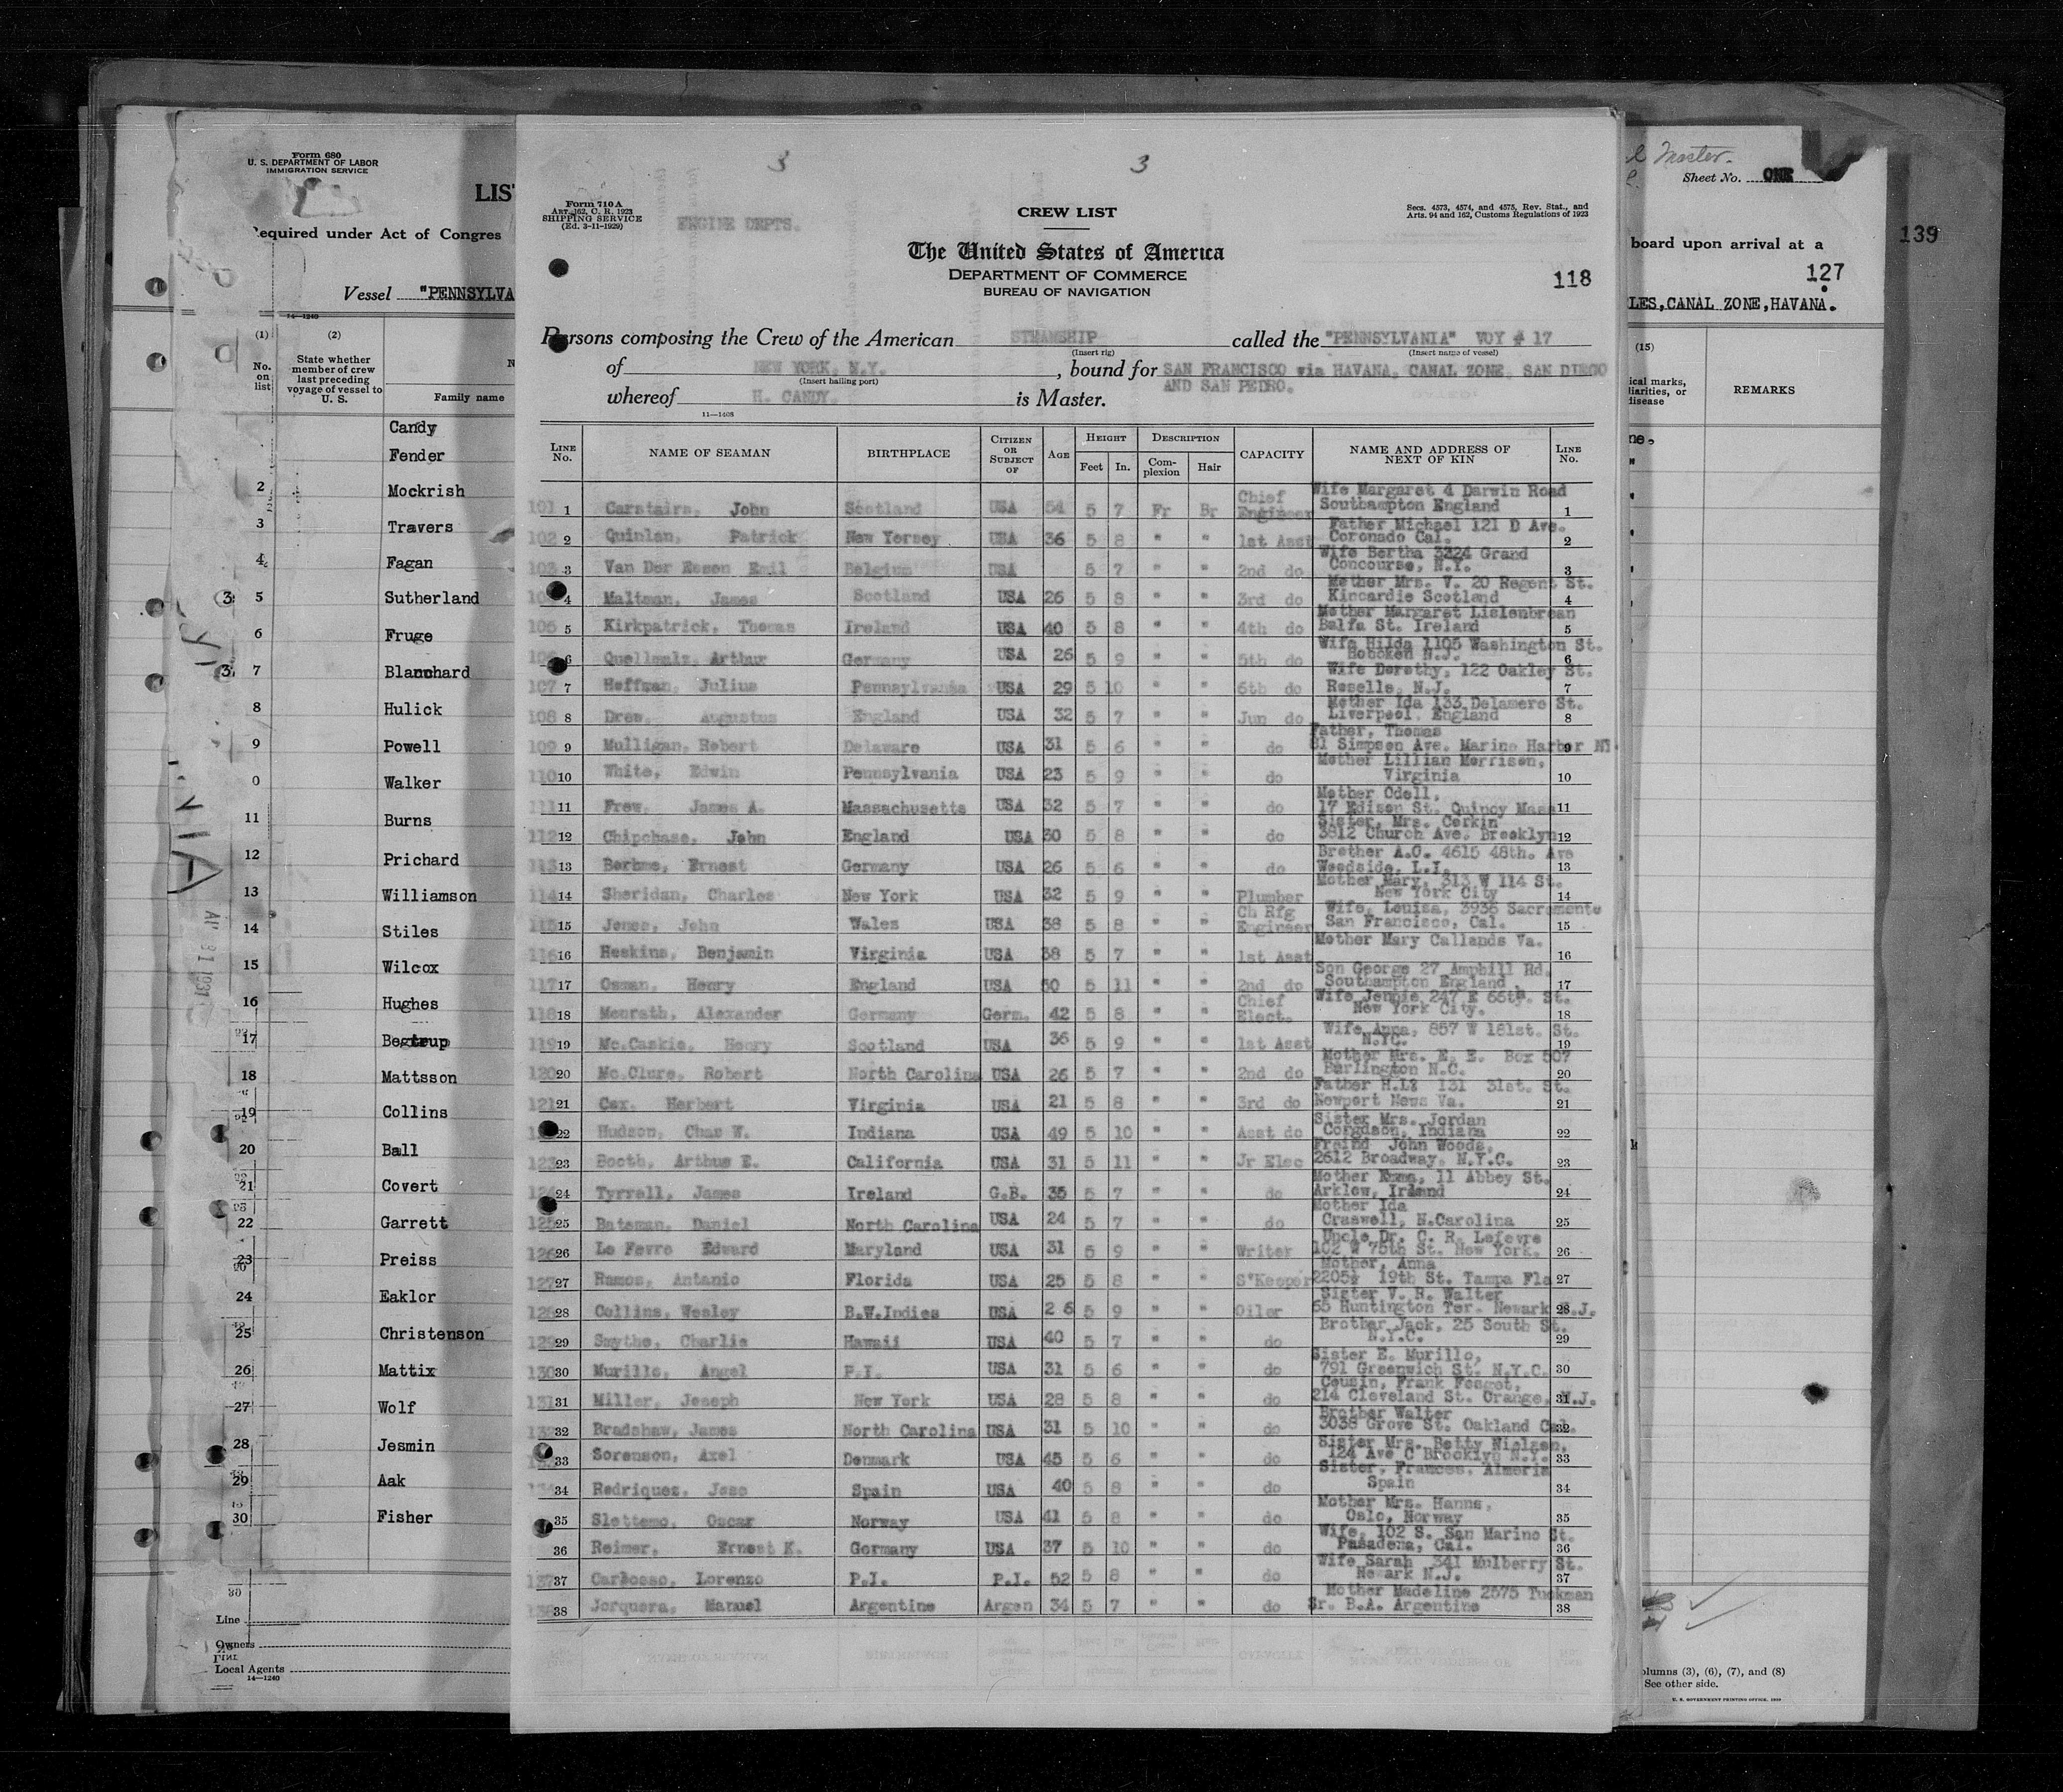 Form 680
U. S. DEPARTMENT OF LABOR
IMMIGRATION SERVICE
LIS
Required under Act of Congres
Vessel "PENNSYLVA
14—1240
(1) (2)
No. on list
State whether member of crew last preceding voyage of vessel to U. S.
N
Family name
Candy
Fender
2 Mockrish
3 Travers
4 Fagan
3 5 Sutherland
6 Fruge
3 7 Blanchard
8 Hulick
9 Powell
0 Walker
11 Burns
12 Prichard
13 Williamson
14 Stiles
15 Wilcox
16 Hughes
17
18 Mattsson
19 Collins
20 Ball
21 Covert
22 Garrett
23 Preiss
24 Eaklor
25 Christenson
26 Mattix
27 Wolf
28 Jesmin
29 Aak
30 Fisher
30
Line
Owners
Local Agents
14—1240
3 3
Form 710A
ART. 162, C. R. 1923
SHIPPING SERVICE
(Ed. 3-11-1929)
ENGINE DEPTS.
CREW LIST
Secs. 4573, 4574, and 4575, Rev. Stat., and
Arts. 94 and 162, Customs Regulations of 1923
The United States of America
DEPARTMENT OF COMMERCE
BUREAU OF NAVIGATION
118
Persons composing the Crew of the American STEAMSHIP called the "PENNSYLVANIA" VOY # 17
(Insert rig) (Insert name of vessel)
of NEW YORK, N.Y. , bound for SAN FRANCISCO via HAVANA, CANAL ZONE, SAN DIEGO
(Insert hailing port)
AND SAN PEDRO.
whereof H. CANDY. is Master.
11—1408
LINE No. NAME OF SEAMAN BIRTHPLACE CITIZEN OR SUBJECT OF AGE HEIGHT Feet In. DESCRIPTION Complexion Hair CAPACITY NAME AND ADDRESS OF NEXT OF KIN LINE No.
101 1 Carstairs, John Scotland USA 54 5 7 Fr Br Chief Engineer Wife Margaret 4 Darwin Road Southampton England 1
102 2 Quinlan, Patrick New Yersey USA 36 5 8 " " 1st Asst Father Michael 121 D Ave. Coronado Cal. 2
103 3 Van Der Essen Emil Belgium USA 5 7 " " 2nd do Wife Bertha 3224 Grand Concourse, N.Y. 3
4 Maltman, James Scotland USA 26 5 8 " " 3rd do Mother Mrs. V. 20 Regent St. Kincardie Scotland 4
105 5 Kirkpatrick, Thomas Ireland USA 40 5 8 " " 4th do Mother Margaret Belfa St. Ireland 5
106 6 Quellmalz, Arthur Germany USA 26 5 9 " " 5th do Wife Hilda 1105 Washington St. Hoboken N.J. 6
107 7 Hoffman, Julius Pennsylvania USA 29 5 10 " " 6th do Wife Dorothy, 122 Oakley St. Roselle, N.J. 7
108 8 Drew, Augustus England USA 32 5 7 " " Jun do Mother Ida 133 Delamere St. Liverpool. England 8
109 9 Mulligan, Robert Delaware USA 31 5 6 " " do Father, Thomas 81 Simpson Ave. Marine Harbor 9
110 10 White, Edwin Pennsylvania USA 23 5 9 " " do Mother Lillian Morrison, Virginia 10
111 11 Frew, James A. Massachusetts USA 32 5 7 " " do Mother Odell, 17 Edison St. Quincy Mass 11
112 12 Chipchase, John England USA 30 5 8 " " do Sister, Mrs. Corkin 3812 Church Ave. Brooklyn 12
113 13 Boehme, Ernest Germany USA 26 5 6 " " do Brother A.O. 4615 48th. Ave Woodside, L.I. 13
114 14 Sheridan, Charles New York USA 32 5 9 " " Plumber Mother Mary, 313 W 114 St. New York City 14
115 15 Jones, John Wales USA 38 5 8 " " Ch Rfg Engineer Wife, Louisa, 3936 Sacramento San Francisco, Cal. 15
116 16 Heskins, Benjamin Virginia USA 38 5 7 " " 1st Asst Mother Mary Callands Va. 16
117 17 Osman, Henry England USA 50 5 11 " " 2nd do Son George 27 Amphill Rd. Southampton England 17
118 18 Menrath, Alexander Germany Germ. 42 5 8 " " Chief Elect. Wife Jennie 247 E 66th. St. New York City. 18
119 19 Mc.Caskie, Henry Scotland USA 36 5 9 " " 1st Asst Wife Anna, 857 W 181st. St. N.YC. 19
120 20 Mc.Clure, Robert North Carolina USA 26 5 7 " " 2nd do Mother Mrs. E. E. Box 507 Burlington N.C. 20
121 21 Cox, Herbert Virginia USA 21 5 8 " " 3rd do Father H.L. 131 31st. St. Newport News Va. 21
22 Hudson, Chas W. Indiana USA 49 5 10 " " Asst do Sister Mrs. Jordan Congdson, Indiana 22
123 23 Booth, Arthus E. California USA 31 5 11 " " Jr Elec Freind John Woods, 2612 Broadway, N.Y.C. 23
24 Tyrrell, James Ireland G.B. 35 5 7 " " do Mother Emma, 11 Abbey St. Arklow, Ireland 24
125 25 Bateman, Daniel North Carolina USA 24 5 7 " " do Mother Ida Craswell, N.Carolina 25
126 26 Le Fevre Edward Maryland USA 31 5 9 " " Writer Uncle Dr. C. R. Lefevre 102 W 75th St. New York. 26
127 27 Ramos, Antanio Florida USA 25 5 8 " " S'Keeper Mother, Anna 2205½ 19th St. Tampa Fla 27
128 28 Collins, Wesley B.W.Indies USA 2 6 5 9 " " Oiler Sister V. R. Walter 65 Huntington Ter. Newark N.J. 28
129 29 Smythe, Charlie Hawaii USA 40 5 7 " " do Brother Jack, 25 South St. N.Y.C. 29
130 30 Murillo, Angel P.I. USA 31 5 6 " " do Sister E. Murillo, 791 Greenwich St. N.Y.C. 30
131 31 Miller, Joseph New York USA 28 5 8 " " do Cousin, Frank Fosget, 214 Cleveland St. Orange, N.J. 31
132 32 Bradshaw, James North Carolina USA 31 5 10 " " do Brother Walter 3038 Grove St. Oakland Cal. 32
33 Sorenson, Axel Denmark USA 45 5 6 " " do Sister Mrs. Betty Nielsen, 124 Ave C Brooklyn N.Y. 33
34 Rodriquez, Jose Spain USA 40 5 8 " " do Sister, Frances, Almeria Spain 34
35 Slettemo, Oscar Norway USA 41 5 8 " " do Mother Mrs. Hanna, Oslo, Norway 35
36 Reimer, Ernest K. Germany USA 37 5 10 " " do Wife, 102 S. San Marino St. Pasadena, Cal. 36
137 37 Lorenzo P.I. P.I. 52 5 8 " " do Wife Sarah 341 Mulberry St. Newark N.J. 37
138 38 Jorquera, Manuel Argentine Argen 34 5 7 " " do Mother Madeline 2575 Tuckman Sr. B.A. Argentine 38
Master.
Sheet No. ONE
board upon arrival at a
139
127
LES,CANAL ZONE,HAVANA.
(15)
ical marks,
liarities, or
disease
REMARKS
ne.
olumns (3), (6), (7), and (8)
See other side.
U. S. GOVERNMENT PRINTING OFFICE